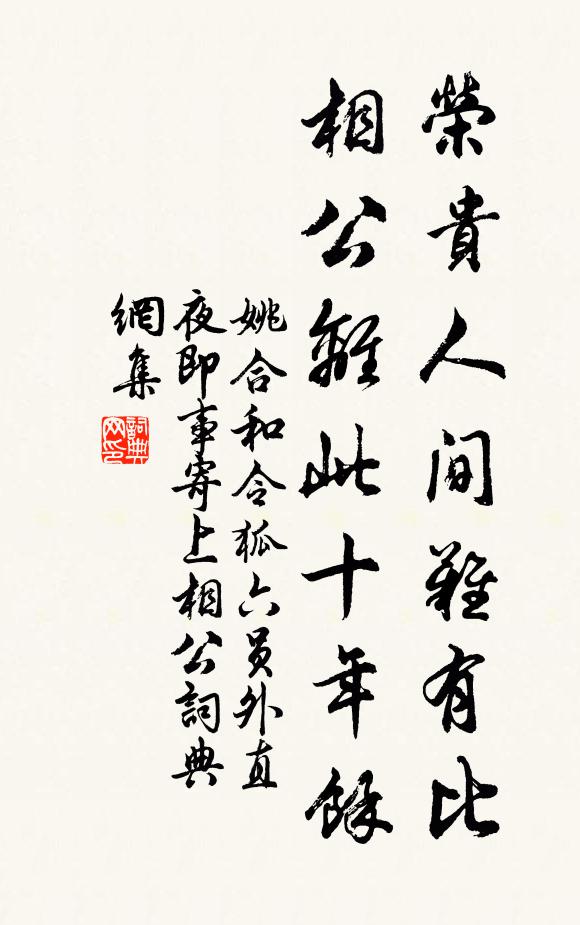 榮貴人間難有比
相公離此十年餘
姚合和令狐六員外直
夜即事寄上相公詞典
網集
詞典
网印